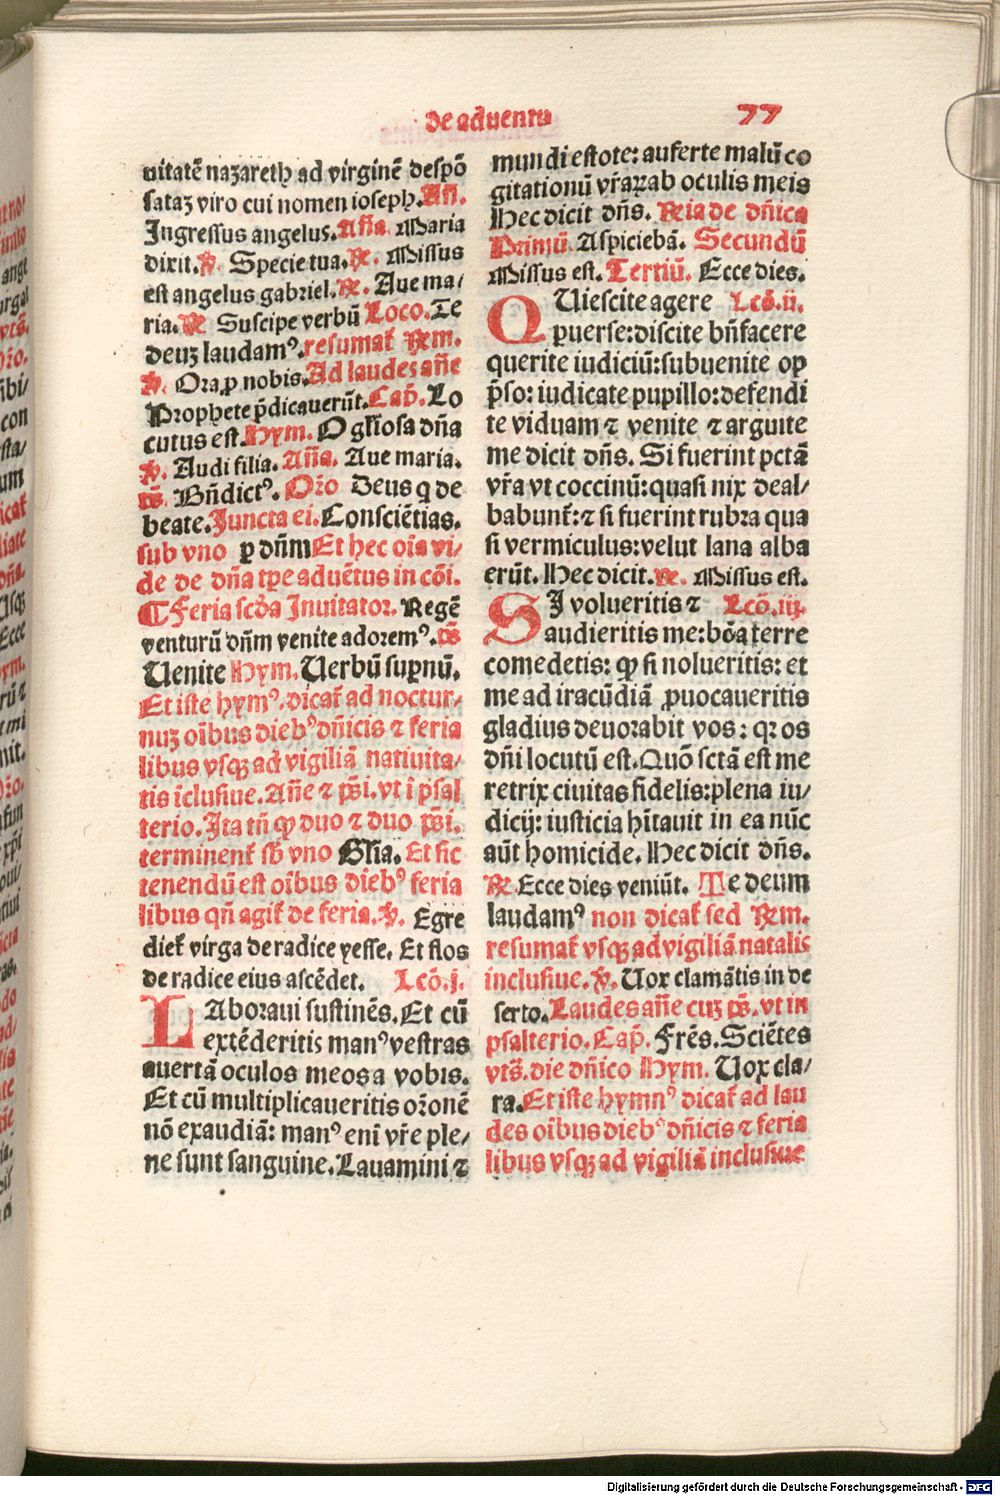 de aduentu 77
uitatē nazareth ad virginē despō
sataꝫ viro cui nomen ioseph. Añ.
Ingressus angelus. Aña. Maria
dixit. ℣. Specie tua. ℟. Missus
est angelus gabriel. ℟. Aue ma/
ria. ℟ Suscipe verbū Loco. Te
deuꝫ laudamꝰ. resumat̃ ℟m.
℣. Ora ꝓ nobis. Ad laudes añe
Prophete p̄dicauerūt. Cap̄. Lo
cutus est. Hym. O gl̄iosa dña
℣. Audi filia. Aña. Aue maria.
p̄s. Bn̄dictꝰ. Or̄o Deus q de
beate. Juncta ei. Consciētias.
sub vno ꝑ dn̄m Et hec oīa vi/
de de dña tp̄e aduētus in cōi.
¶ Feria scd̄a Inuitator. Regē
venturū dn̄m venite adoremꝰ. p̄s
Uenite Hym. Uerbū supnū.
Et iste hymꝰ. dicat̃ ad noctur/
nuꝫ oībus diebꝰ dn̄icis ⁊ feria
libus vsqꝫ ad vigiliā natiuita/
tis īclusiue. Añe ⁊ p̄si. vt ī psal
terio. Ita tn̄ ꝙ duo ⁊ duo p̄si.
terminent̃ sb̄ vno Gl̄ia. Et sic
tenendū est oībus diebꝰ feria
libus qn̄ agit̃ de feria. ℣. Egre
diet̃ virga de radice yesse. Et flos
de radice eius ascēdet. Lcō. j.
LAboraui sustinēs. Et cū
extēderitis manꝰ vestras
auertā oculos meos a vobis.
Et cū multiplicaueritis or̄onē
nō exaudiā: manꝰ enī vr̄e ple/
ne sunt sanguine. Lauamini ⁊
mundi estote: auferte malū co
gitationū vr̄aꝝ ab oculis meis
Hec dicit dn̄s. ℟ia de dn̄ica
Primū. Aspiciebā. Secundū
Missus est. Tertiū. Ecce dies.
QUiescite agere Lcō. ii.
ꝑuerse: discite bn̄facere
querite iudiciū: subuenite op
p̄so: iudicate pupillo: defendi
te viduam ⁊ venite ⁊ arguite
me dicit dn̄s. Si fuerint pctā
vr̄a vt coccinū: quasi nix deal/
babunt̃: ⁊ si fuerint rubra qua
si vermiculus: velut lana alba
erūt. Hec dicit. ℟. Missus est.
SI volueritis ⁊ Lcō. iij.
audieritis me: bōa terre
comedetis: ꝙ si nolueritis: et
me ad iracūdiā ꝓuocaueritis
gladius deuorabit vos: qꝛ os
dn̄i locutū est. Quō sctā est me
retrix ciuitas fidelis: plena iu/
dicij: iusticia hītauit in ea nūc
aūt homicide. Hec dicit dn̄s.
℟. Ecce dies veniūt. Te deum
laudamꝰ non dicat̃ sed ℟m.
resumat̃ vsqꝫ ad vigiliā natalis
inclusiue. ℣. Uox clamātis in de
serto. Laudes añe cuꝫ p̄s. vt in
psalterio. Cap̄. Frēs. Sciētes
vts̄. die dn̄ico Hym. Uox cla/
ra. Et iste hymnꝰ dicat̃ ad lau
des oībus diebꝰ dn̄icis ⁊ feria
libus vsqꝫ ad vigiliā inclusiue
Digitalisierung gefördert durch die Deutsche Forschungsgemeinschaft - DFG